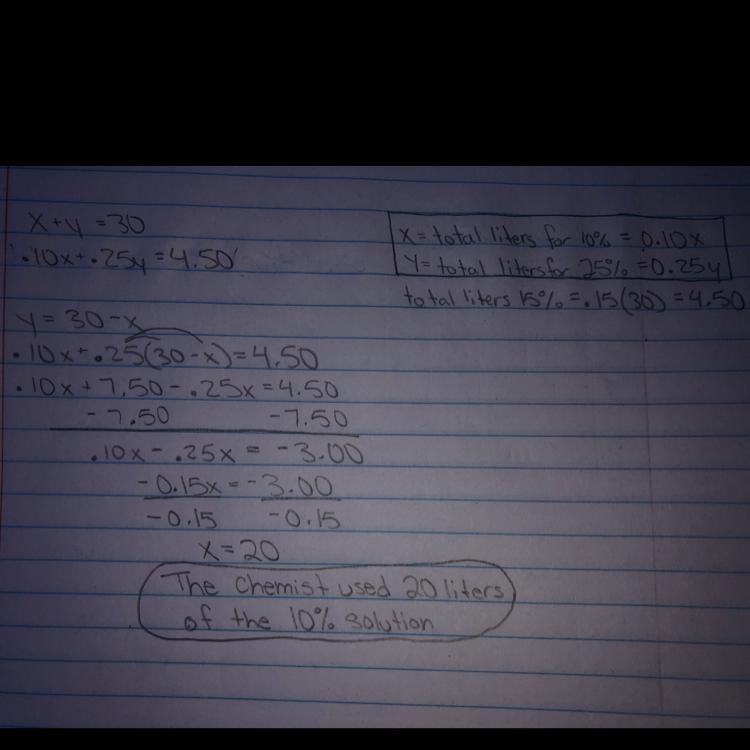 x+y=30
.10x+.25y=4.50
X= total liters for 10% = 0.10x
Y= total liters for 25% =0.25y
total liters 15% = .15(30) = 4.50
y= 30-x
.10x+.25(30-x)=4.50
.10x+7.50-.25x=4.50
-7.50 -7.50
.10x-.25x = -3.00
-0.15x = -3.00
-0.15 -0.15
x=20
The Chemist used 20 liters
of the 10% solution